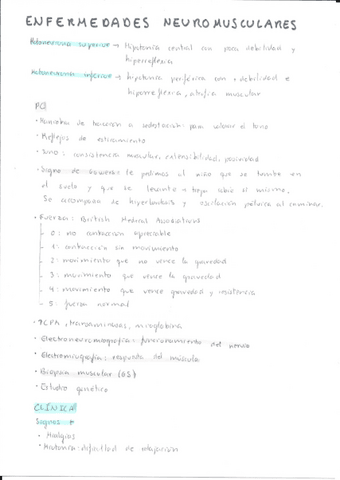 ENFERMEDADES NEUROMUSCULARES
Motoneurona superior → Hipotonía central con poca debilidad y
hiperreflexia
Motoneurona inferior → hipotonía periférica con ↑ debilidad e
hiporreflexia, atrofia muscular
• Maniobra de tracción a sedestación: para valorar el tono
• Reflejos de estiramiento
• Tono: consistencia muscular, extensibilidad, pasividad
• Signo de Gowers: le pedimos al niño que se siente en
el suelo y que se levante → trepa sobre si mismo.
Se acompaña de hiperlordosis y oscilación pélvica al caminar.
• Fuerza: British Medical Association
0: no contracción apreciable
1: contracción sin movimiento
2: movimiento que no vence la gravedad
3: movimiento que vence la gravedad
4: movimiento que vence gravedad y resistencia
5: fuerza normal
• ↑CPK, transaminasas, mioglobina
• Electroneurografía: funcionamiento del nervio
• Electromiografía: respuesta del músculo
• Biopsia muscular (GS)
• Estudio genético
CLÍNICA
Signos +
• Mialgias
• Miotonía: dificultad de relajación